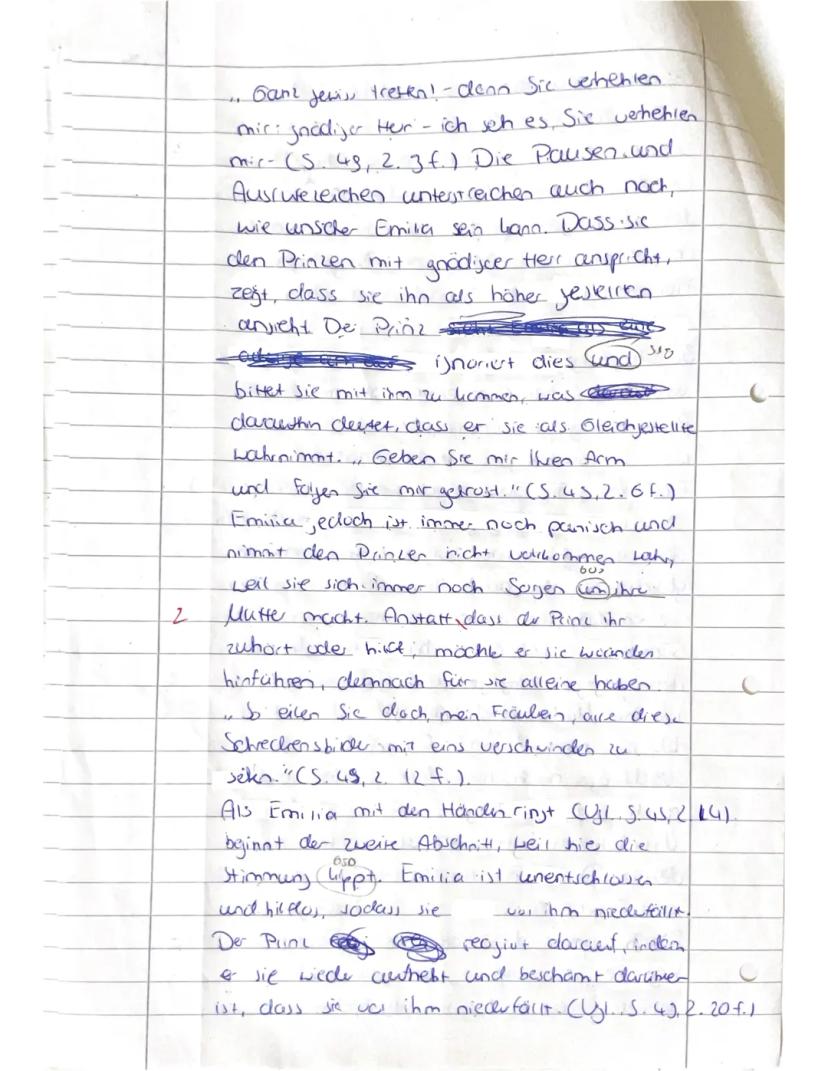 „Ganz gewiss treffen! - denn Sie verhehlen
mir: gnädiger Her - ich seh es, Sie verhehlen
mir - (S. 49, Z. 3f.) Die Pausen und
Ausrufezeichen unterstreichen auch noch,
wie unsicher Emilia sein kann. Dass sie
den Prinzen mit gnädiger Herr anspricht,
zeigt, dass sie ihn als höher gestellten
ansieht Der Prinz
ignoriert dies und 310
bittet sie mit ihm zu kommen, was
daraufhin deutet, dass er sie als Gleichgestellte
wahrnimmt. „Geben Sie mir Ihren Arm
und folgen Sie mir getrost." (S. 49, Z. 6f.)
Emilia jedoch ist immer noch panisch und
nimmt den Prinzen nicht vollkommen wahr,
weil sie sich immer noch Sorgen um ihre
2 Mutter macht. Anstatt, dass der Prinz ihr
zuhört oder hilft, möchte er sie woanders
hinführen, demnach für sie alleine haben.
„So eilen Sie doch, mein Fräulein, alle diese
Schreckensbilder mit eins verschwinden zu
sehen." (S. 49, Z. 12f.).
Als Emilia mit den Händen ringt (Vgl. S. 49, Z. 14)
beginnt der zweite Abschnitt, weil hier die
Stimmung kippt. Emilia ist unentschlossen
und hilflos, sodass sie vor ihm niederfällt.
Der Prinz reagiert darauf, indem
er sie wieder aufhebt und beschämt darüber
ist, dass sie vor ihm niederfällt. (Vgl. S. 49, Z. 20f.)